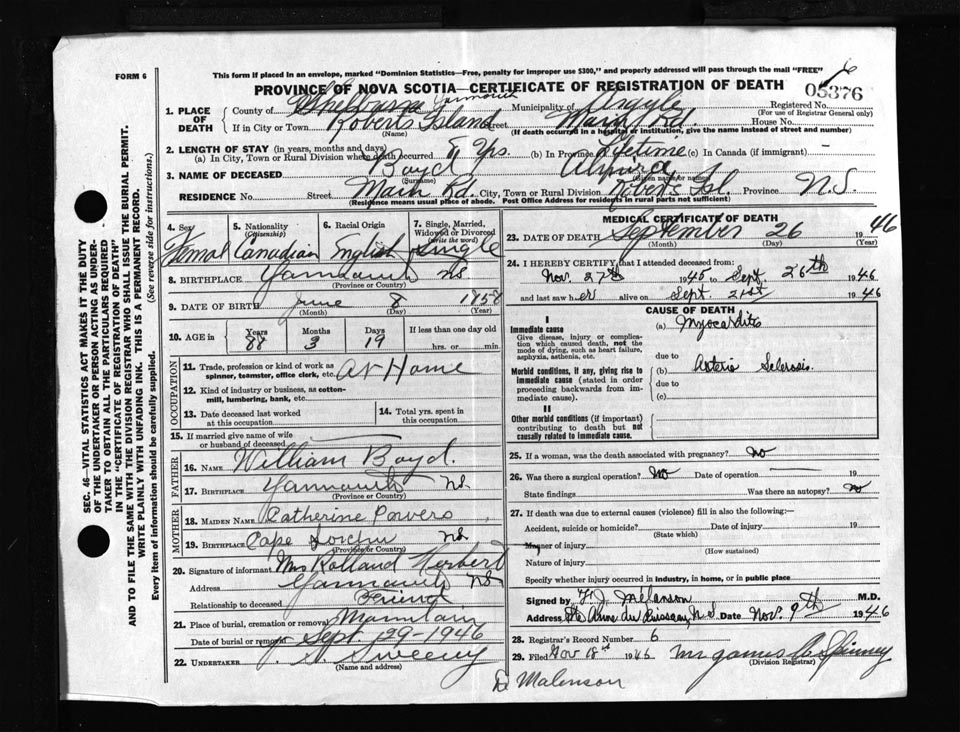 FORM 6
This form if placed in an envelope, marked "Dominion Statistics—Free, penalty for improper use $300," and properly addressed will pass through the mail "FREE"
PROVINCE OF NOVA SCOTIA—CERTIFICATE OF REGISTRATION OF DEATH
05376
1. PLACE OF DEATH County of Shelburne Yarmouth Municipality of Argyle Registered No.
(For use of Registrar General only)
If in City or Town Roberts Island Street Main Rd. House No.
(Name) (If death occurred in a hospital or institution, give the name instead of street and number)
2. LENGTH OF STAY (in years, months and days)
(a) In City, Town or Rural Division where death occurred 8 Yrs. (b) In Province Lifetime (c) In Canada (if immigrant) —
3. NAME OF DECEASED Boyd
(Surname) (Given name or names)
RESIDENCE No. Street Main Rd. City, Town or Rural Division Roberts Isl. Province N.S.
(Residence means usual place of abode. Post Office Address for residents in rural parts not sufficient)
4. Sex 5. Nationality (Citizenship) 6. Racial Origin 7. Single, Married, Widowed or Divorced (write the word)
Femal Canadian English Single
8. BIRTHPLACE Yarmouth NS
(Province or Country)
9. DATE OF BIRTH June 8 1858
(Month) (Day) (Year)
10. AGE in Years Months Days If less than one day old
88 3 19 hrs. or min.
OCCUPATION
11. Trade, profession or kind of work as spinner, teamster, office clerk, etc. At Home
12. Kind of industry or business, as cotton-mill, lumbering, bank, etc.
13. Date deceased last worked at this occupation
14. Total yrs. spent in this occupation
15. If married give name of wife or husband of deceased —
FATHER
16. NAME William Boyd.
17. BIRTHPLACE Yarmouth NS
(Province or Country)
MOTHER
18. MAIDEN NAME Catherine Powers
19. BIRTHPLACE Cape Forchu NS
(Province or Country)
20. Signature of informant Mrs Rolland Herbert
Address Yarmouth NS
Relationship to deceased Friend
21. Place of burial, cremation or removal Mountain
Date of burial or removal Sept. 29-1946
22. UNDERTAKER Sweeny
(Name and address)
MEDICAL CERTIFICATE OF DEATH
23. DATE OF DEATH September 26 1946
(Month) (Day) (Year)
24. I HEREBY CERTIFY that I attended deceased from:
Nov. 27th 1945 to Sept. 26th 1946
and last saw her alive on Sept. 21st 1946
CAUSE OF DEATH
I
Immediate cause
Give disease, injury or complication which caused death, not the mode of dying, such as heart failure, asphyxia, asthenia, etc.
(a) Myocarditis
due to
Morbid conditions, if any, giving rise to immediate cause (stated in order proceeding backwards from immediate cause).
(b) Arterio Sclerosis.
due to
(c)
II
Other morbid conditions (if important) contributing to death but not causally related to immediate cause.
25. If a woman, was the death associated with pregnancy? No
26. Was there a surgical operation? No Date of operation — 19
State findings Was there an autopsy? No
27. If death was due to external causes (violence) fill in also the following:—
Accident, suicide or homicide? Date of injury 19
(State which)
Manner of injury
(How sustained)
Nature of injury
Specify whether injury occurred in industry, in home, or in public place
Signed by F J Melanson M.D.
Address Ste Anne du Ruisseau, N.S. Date Nov. 9th 1946
28. Registrar's Record Number 6
29. Filed Nov 18th 1946 Mrs James C Spinney
(Division Registrar)
Malenson
SEC. 46—VITAL STATISTICS ACT MAKES IT THE DUTY
OF THE UNDERTAKER OR PERSON ACTING AS UNDER-
TAKER TO OBTAIN ALL THE PARTICULARS REQUIRED
IN THE "CERTIFICATE OF REGISTRATION OF DEATH"
AND TO FILE THE SAME WITH THE DIVISION REGISTRAR WHO SHALL ISSUE THE BURIAL PERMIT.
WRITE PLAINLY WITH UNFADING INK. THIS IS A PERMANENT RECORD.
Every item of information should be carefully supplied. (See reverse side for instructions.)